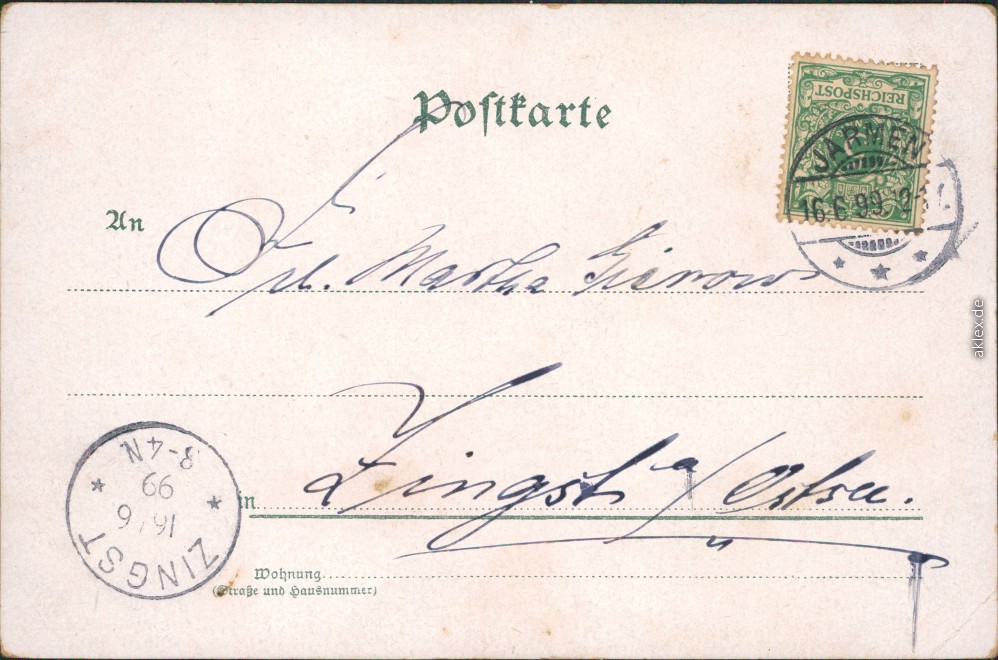 Postkarte
REICHSPOST
JARMEN
16.6.99
An
Frl. Martha
Zingst a/Ostsee.
in
ZINGST
16/6
99
3-4N
Wohnung
(Straße und Hausnummer)
aklex.de